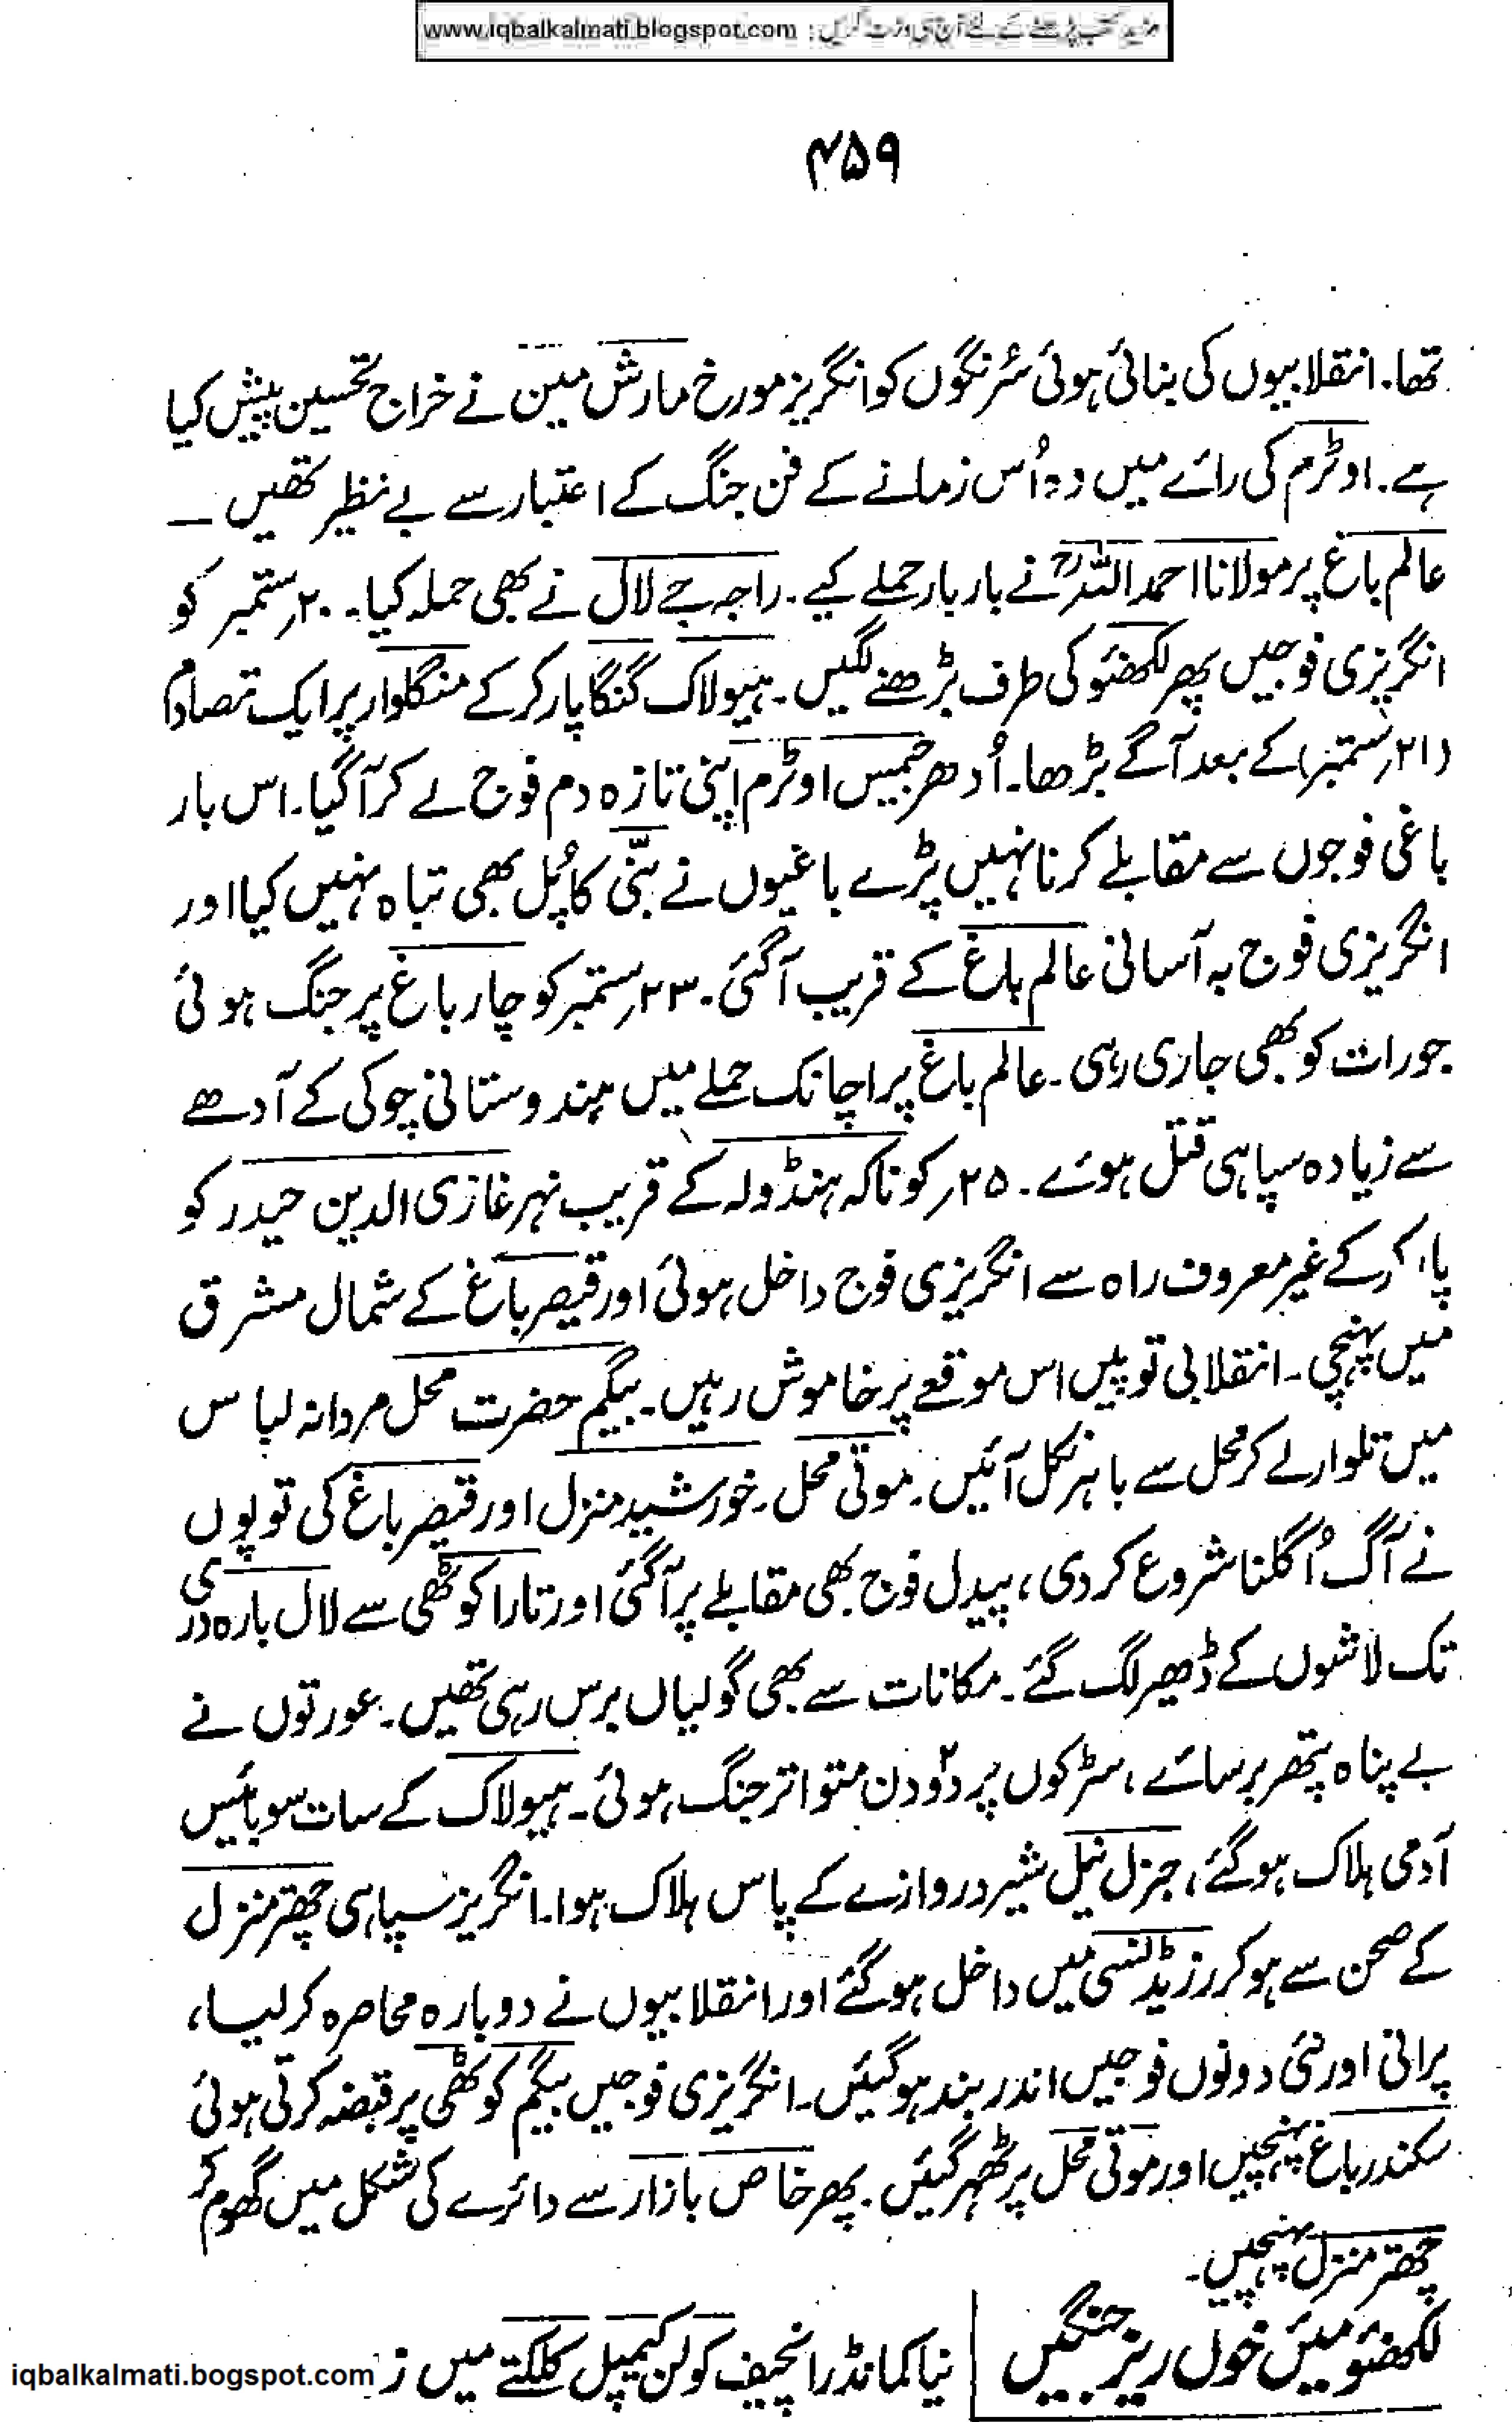 مزید کتب پڑھنے کے لئے آج ہی وزٹ کریں : www.iqbalkalmati.blogspot.com
۴۵۹
تھا۔ انقلابیوں کی بنائی ہوئی سُرنگوں کو انگریز مورخ مارش مین نے خراج تحسین پیش کیا
ہے۔ اوٹرم کی رائے میں وہ اُس زمانے کے فن جنگ کے اعتبار سے بے نظیر تھیں —
عالم باغ پر مولانا احمد اللہؒ نے بار بار حملے کیے۔ راجہ جے لال نے بھی حملہ کیا۔ ۲۰؍ستمبر کو
انگریزی فوجیں پھر لکھنؤ کی طرف بڑھنے لگیں۔ ہیولاک گنگا پار کر کے منگلوار پر ایک تصادم
(۲۱؍ستمبر) کے بعد آگے بڑھا۔ اُدھر جمیس اوٹرم اپنی تازہ دم فوج لے کر آگیا۔ اس بار
باغی فوجوں سے مقابلے کرنا نہیں پڑے باغیوں نے بنّی کا پُل بھی تباہ نہیں کیا اور
انگریزی فوج بہ آسانی عالم باغ کے قریب آگئی۔ ۲۳؍ستمبر کو چار باغ پر جنگ ہوئی
جو رات کو بھی جاری رہی۔ عالم باغ پر اچانک حملے میں ہندوستانی چوکی کے آدھے
سے زیادہ سپاہی قتل ہوئے۔ ۲۵؍ کو ناکہ ہنڈولہ کے قریب نہر غازی الدین حیدر کو
پار کر کے غیر معروف راہ سے انگریزی فوج داخل ہوئی اور قیصر باغ کے شمال مشرق
میں پہنچی۔ انقلابی توپیں اس موقعے پر خاموش رہیں۔ بیگم حضرت محل مردانہ لباس
میں تلوار لے کر محل سے باہر نکل آئیں۔ موتی محل۔ خورشید منزل اور قیصر باغ کی توپوں
نے آگ اُگلنا شروع کر دی، پیدل فوج بھی مقابلے پر آگئی اور تارا کوٹھی سے لال بارہ دری
تک لاشوں کے ڈھیر لگ گئے۔ مکانات سے بھی گولیاں برس رہی تھیں۔ عورتوں نے
بے پناہ پتھر برسائے، سڑکوں پر دو۲ دن متواتر جنگ ہوئی۔ ہیولاک کے سات سو بائیس
آدمی ہلاک ہو گئے، جنرل نیل شیر دروازے کے پاس ہلاک ہوا۔ انگریز سپاہی چھتر منزل
کے صحن سے ہو کر رزیڈنسی میں داخل ہو گئے اور انقلابیوں نے دوبارہ محاصرہ کر لیا،
پرانی اور نئی دونوں فوجیں اندر بند ہو گئیں۔ انگریزی فوجیں بیگم کوٹھی پر قبضہ کرتی ہوئی
سکندر باغ پہنچیں اور موتی محل پر ٹھہر گئیں۔ پھر خاص بازار سے دائرے کی شکل میں گھوم کر
چھتر منزل پہنچیں۔
لکھنؤ میں خوں ریز جنگیں | نیا کمانڈر انچیف کولن کیمپل کلکتے میں ز
iqbalkalmati.bogspot.com